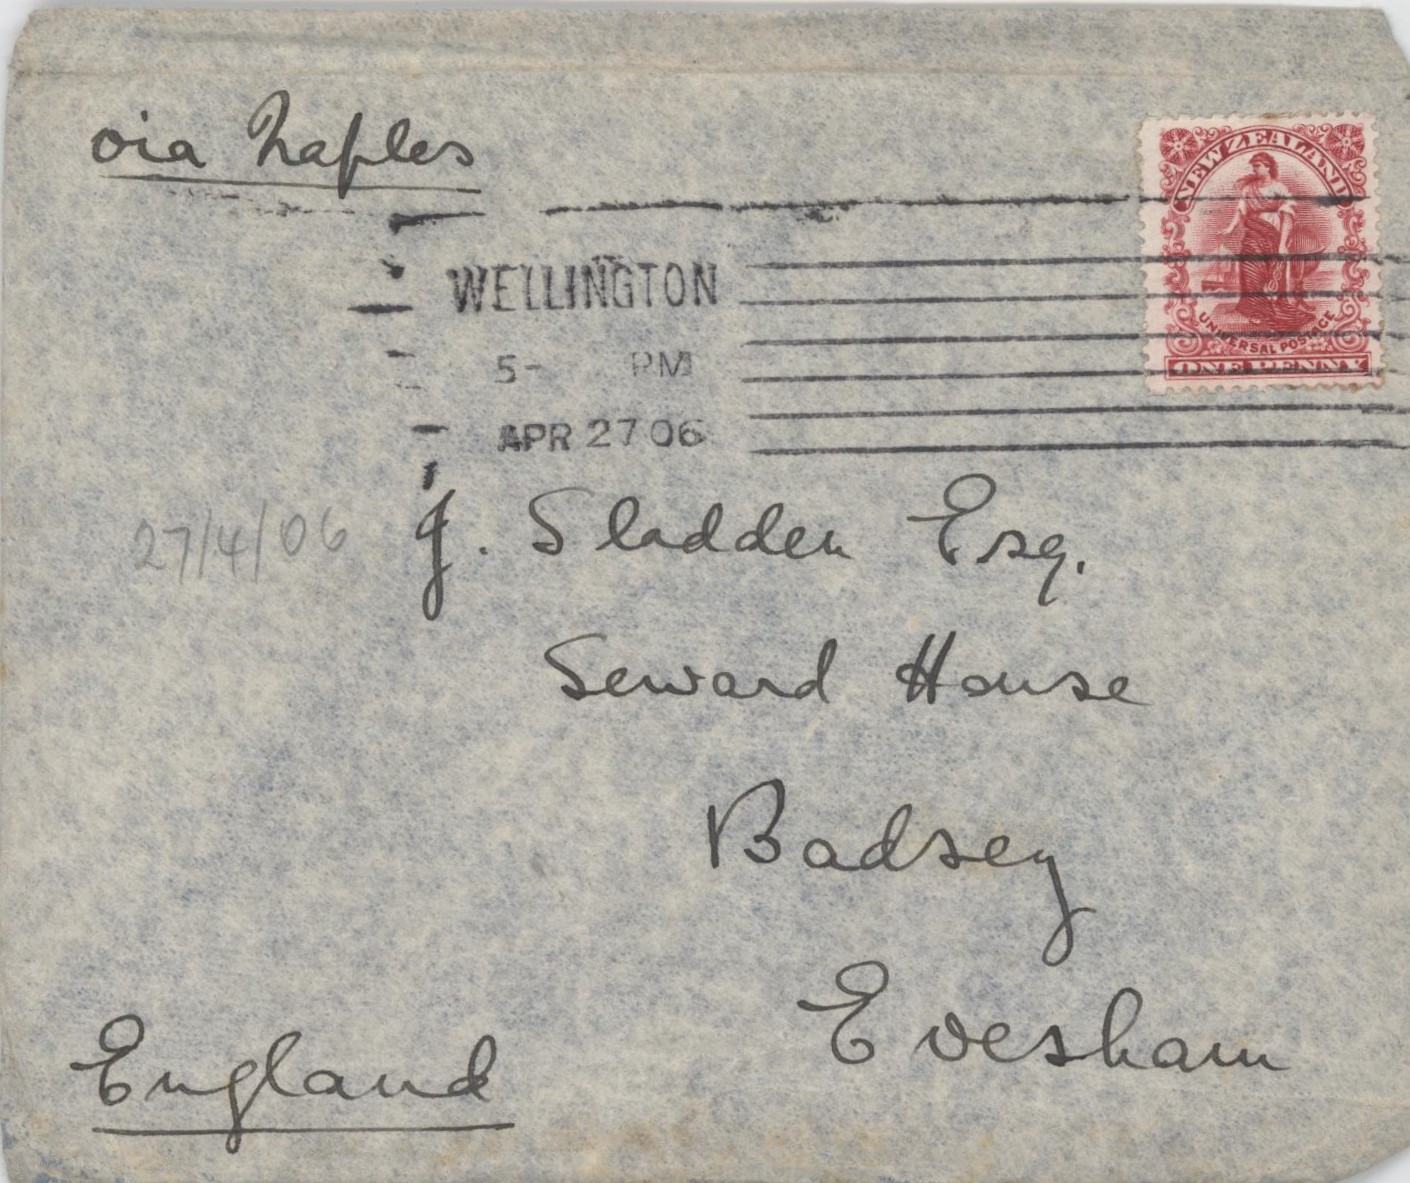 via Naples
NEW ZEALAND
UNIVERSAL POSTAGE
ONE PENNY
WELLINGTON
5- PM
APR 27 06
27/4/06
J. Sladden Esq.
Seward House
Badsey
Evesham
England